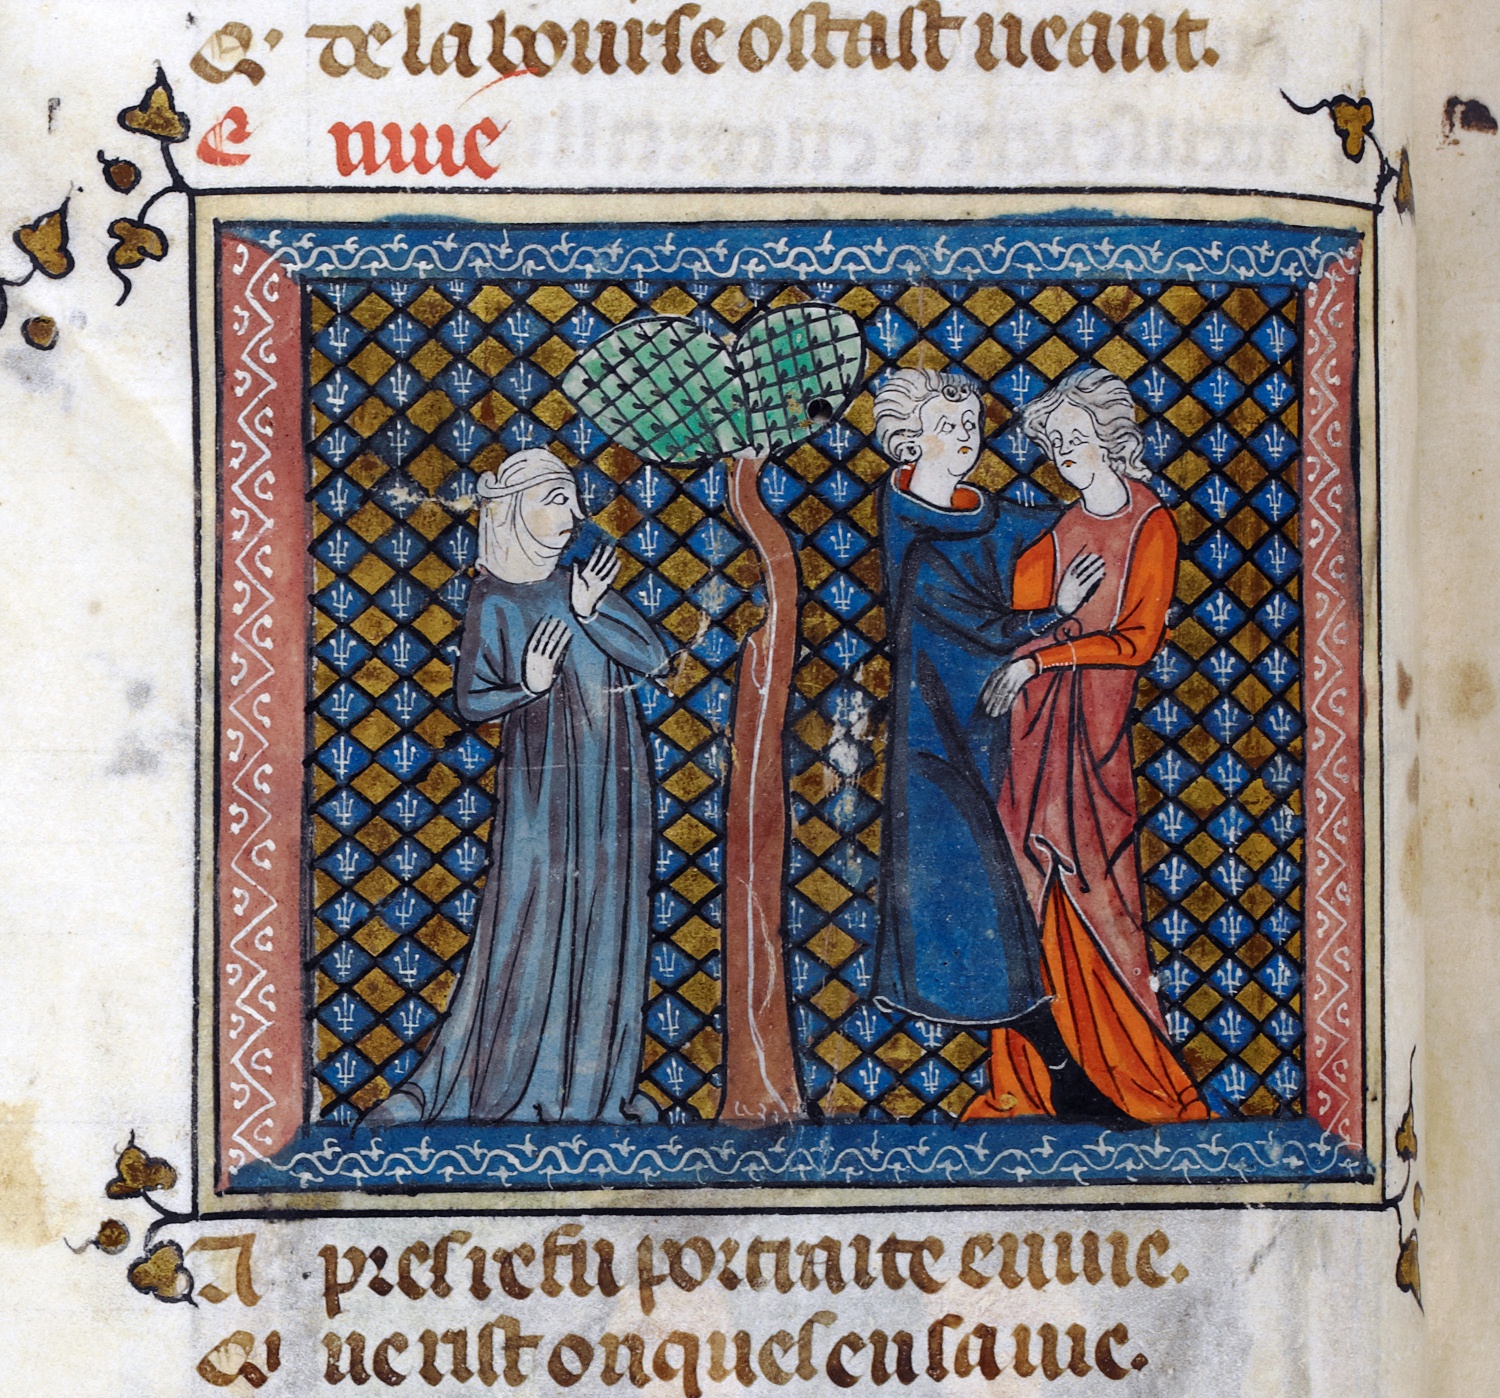 Et de la bourse ostast neant.
Enuie
Apres refu portraite enuie.
Qui ne rist onques en sa uie.